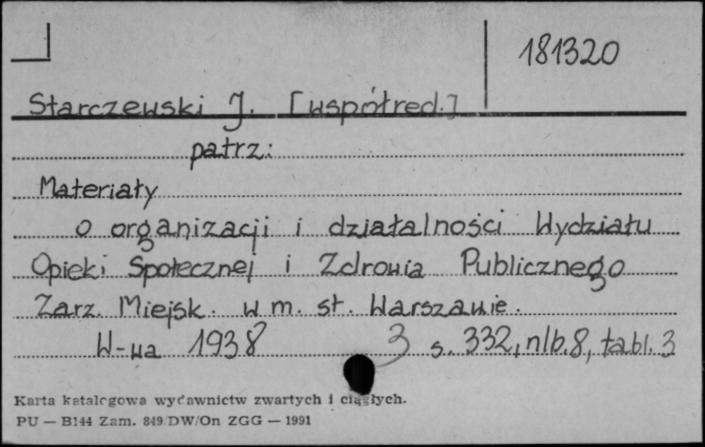 181320
Starczewski J. [współred.]
patrz:
Materiały
o organizacji i działalności Wydziału
Opieki Społecznej i Zdrowia Publicznego
Zarz. Miejsk. w m. st. Warszawie.
W-wa 1938 3 s. 332, nlb. 8, tabl. 3
Karta katalogowa wydawnictw zwartych i ciągłych.
PU — B144 Zam. 849/DW/On ZGG — 1991